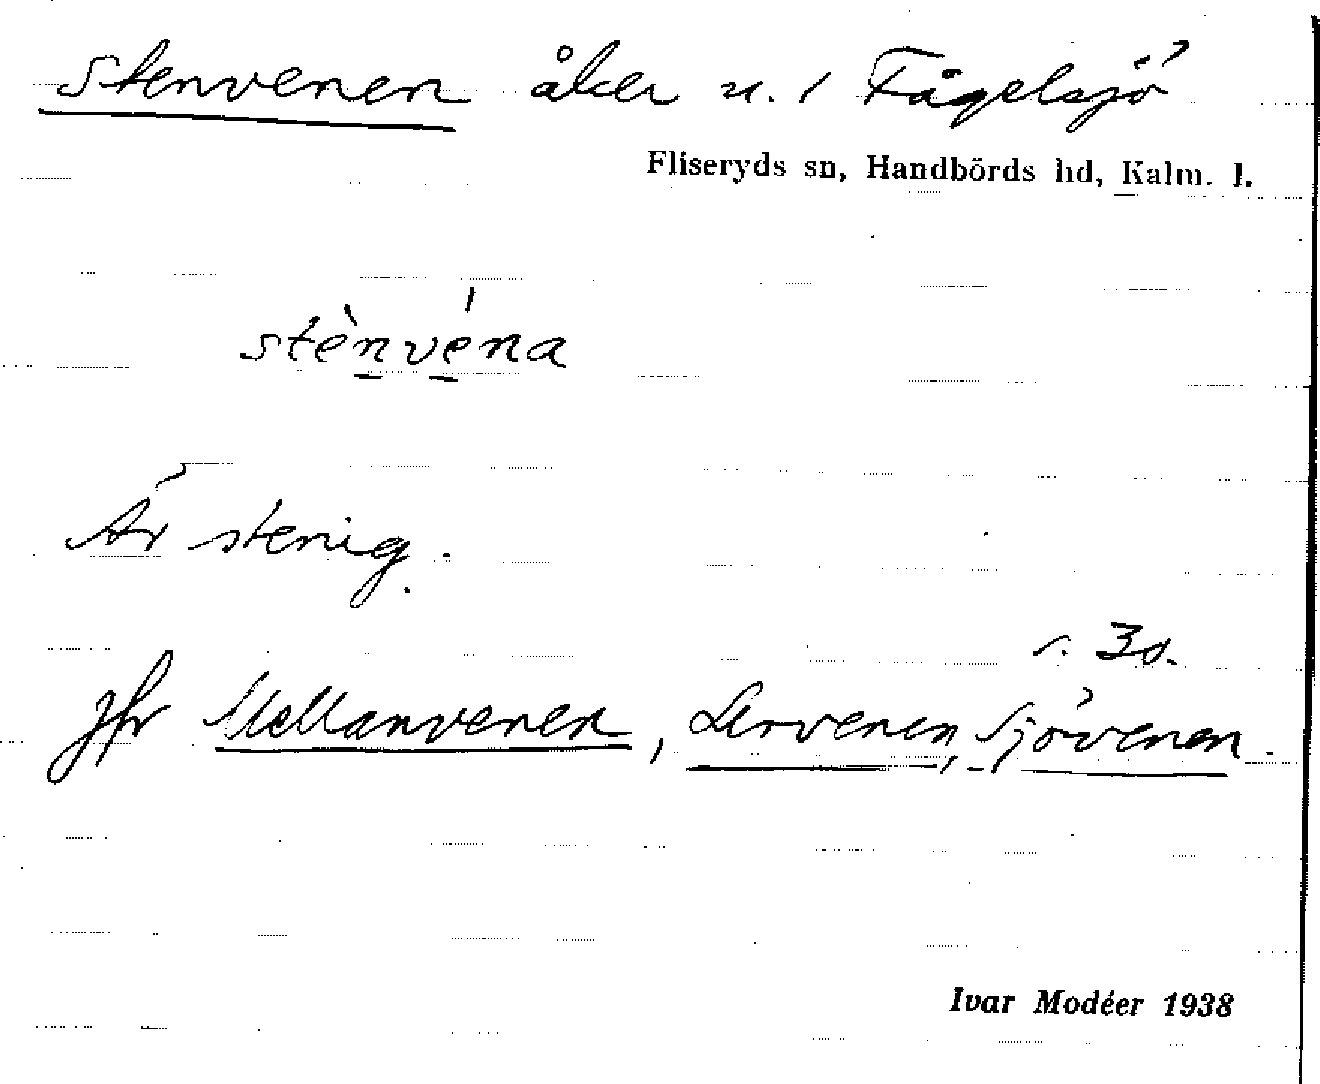 Stenvenen åker n. 1 Fågelsjö
Fliseryds sn, Handbörds hd, Kalm. l.
stènvéna
Är stenig.
s. 3s.
Jfr Mellanvenen, Lervenen, Sjövenen.
Ivar Modéer 1938